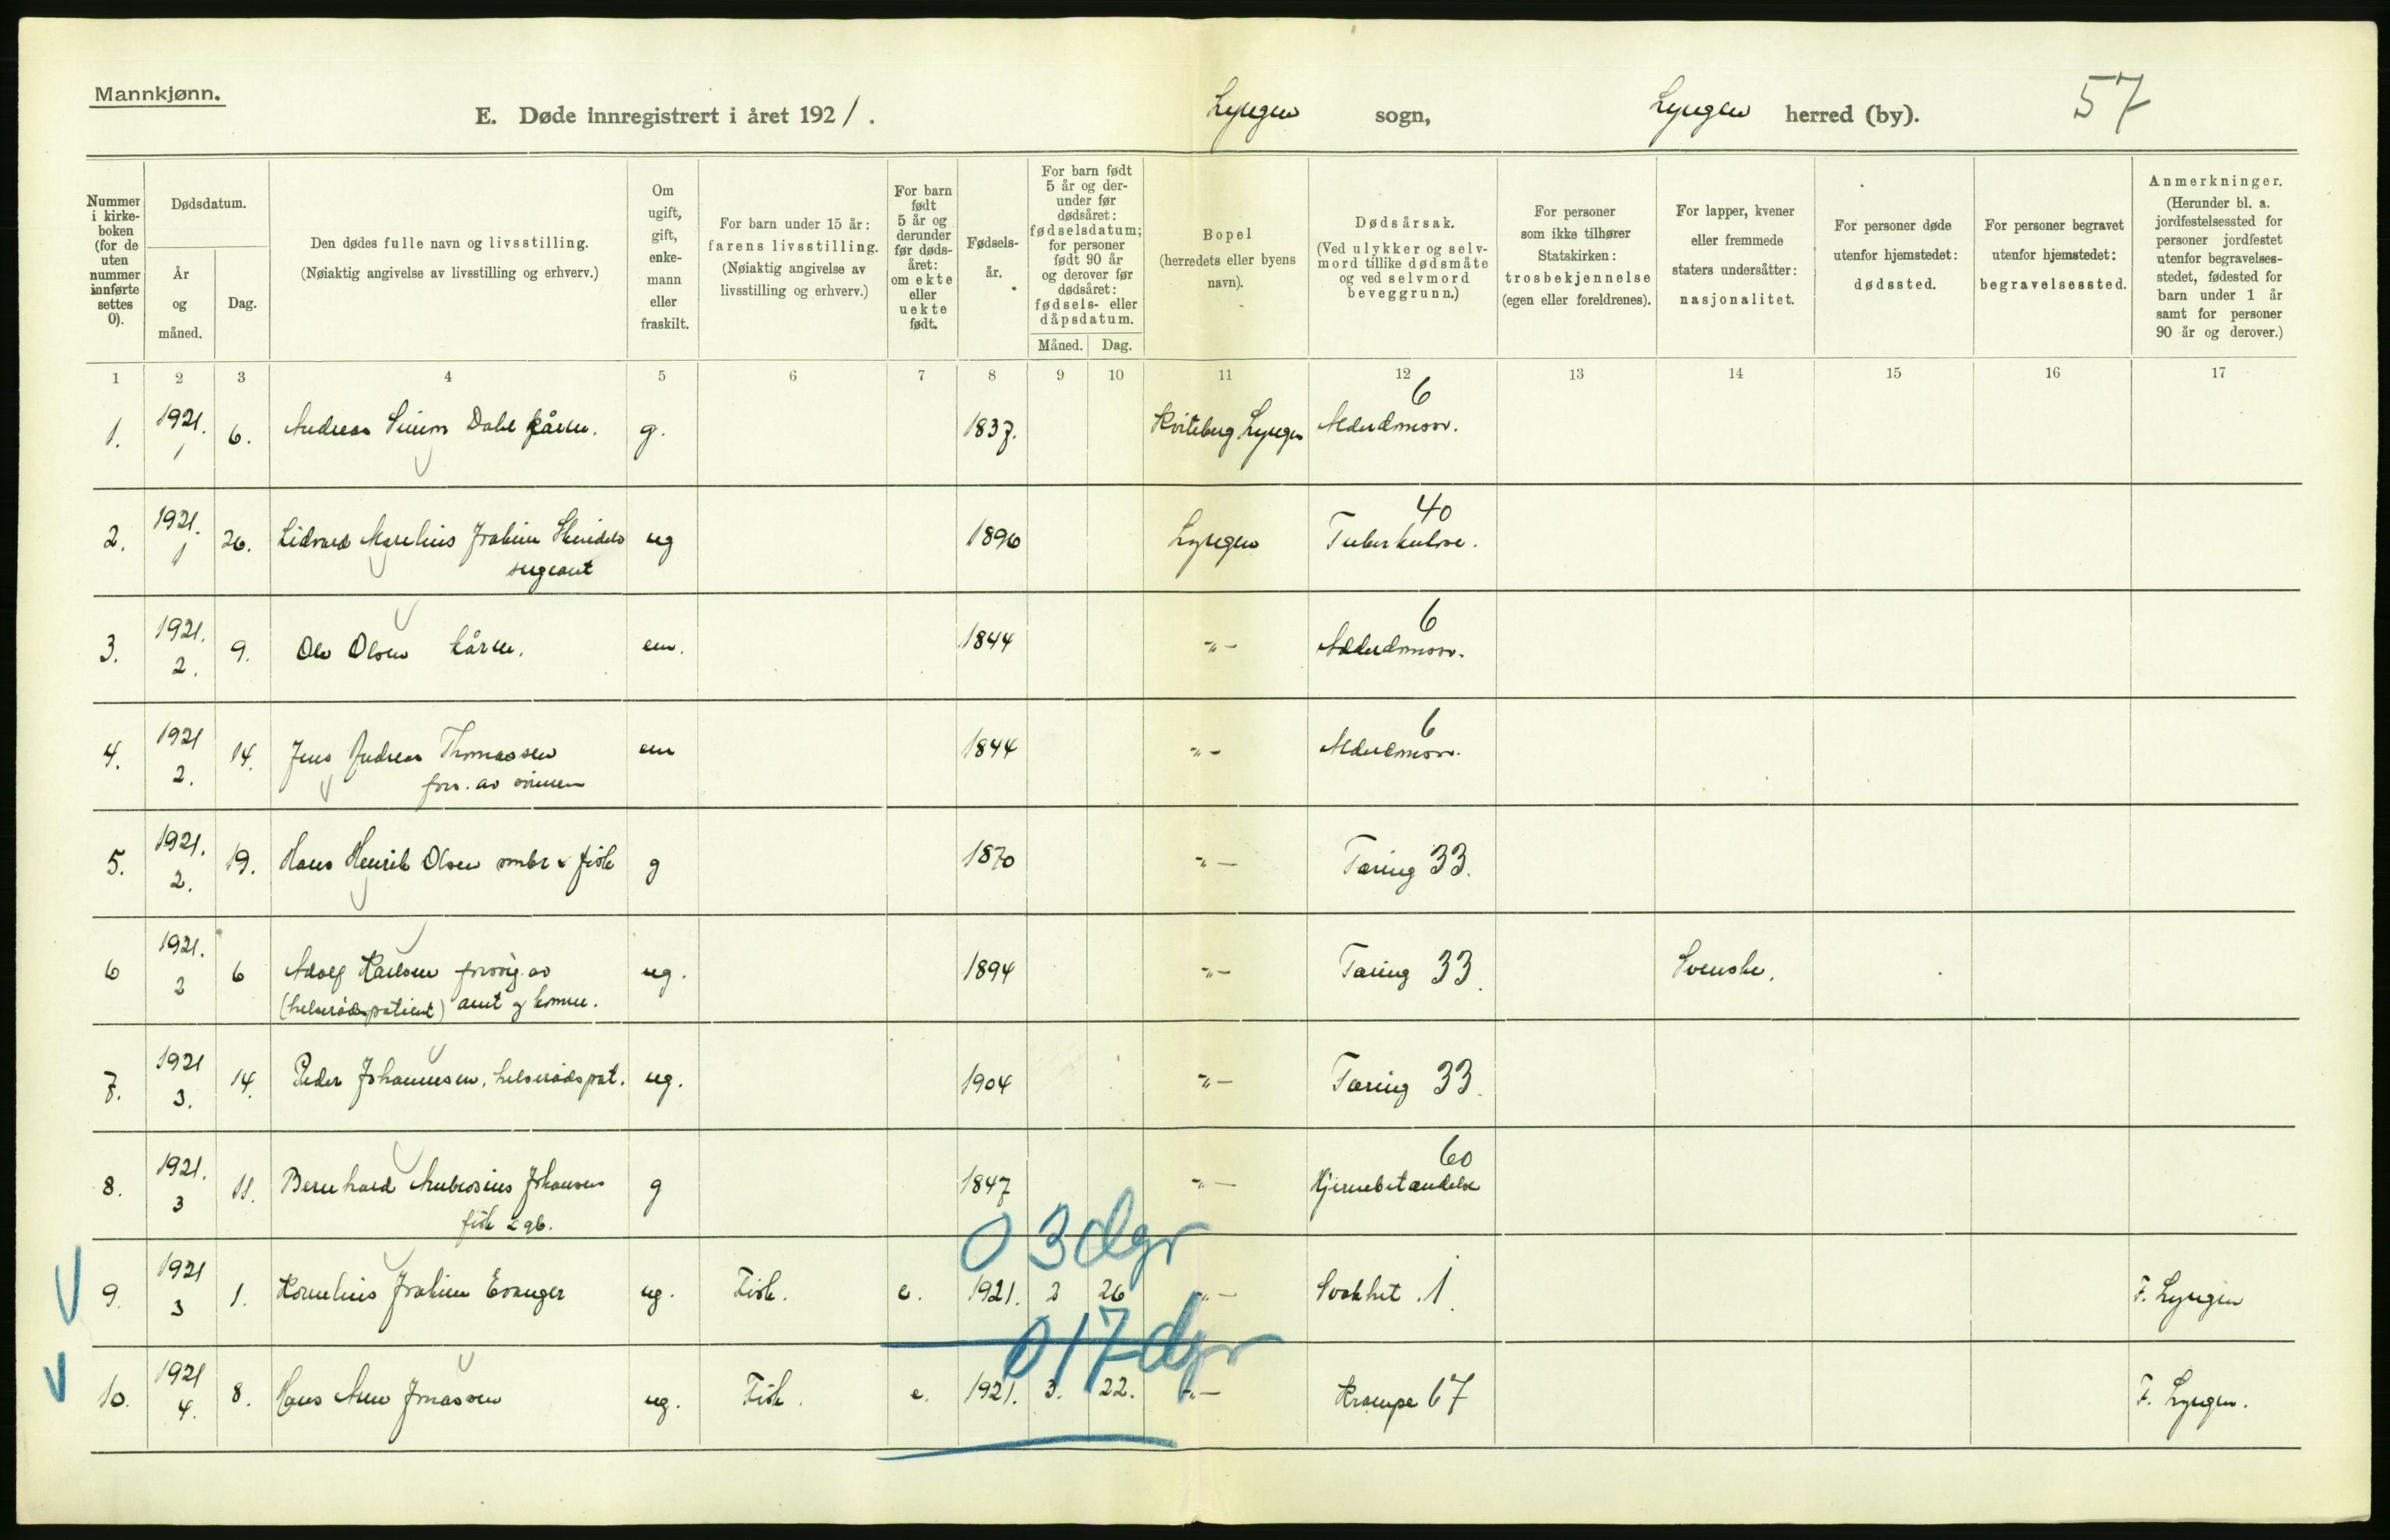 Mannkjønn.
E. Døde innregistrert i året 1921.
Lyngen sogn, Lyngen herred (by). 57
Nummer i kirke-boken (for de uten nummer innførte settes 0).
Dødsdatum.
År og måned.
Dag.
Den dødes fulle navn og livsstilling.
(Nøiaktig angivelse av livsstilling og erhverv.)
Om ugift, gift, enke-mann eller fraskilt.
For barn under 15 år:
farens livsstilling.
(Nøiaktig angivelse av livsstilling og erhverv.)
For barn født 5 år og derunder før døds-året: om ekte eller uekte født.
Fødsels-år.
For barn født 5 år og der-under før dødsåret: fødselsdatum; for personer født 90 år og derover før dødsåret: fødsels- eller dåpsdatum.
Måned. Dag.
Bopel
(herredets eller byens navn).
Dødsårsak.
(Ved ulykker og selv-mord tillike dødsmåte og ved selvmord beveggrunn.)
For personer som ikke tilhører Statskirken: trosbekjennelse (egen eller foreldrenes).
For lapper, kvener eller fremmede staters undersåtter: nasjonalitet.
For personer døde utenfor hjemstedet: dødssted.
For personer begravet utenfor hjemstedet: begravelsessted.
Anmerkninger.
(Herunder bl. a. jordfestelsessted for personer jordfestet utenfor begravelses-stedet, fødested for barn under 1 år samt for personer 90 år og derover.)
1 2 3 4 5 6 7 8 9 10 11 12 13 14 15 16 17
6
1. 1921. 1 6. Andreas Simon Dahl kårm. g. 1837. Kviteberg Lyngen Alderdomssv.
40
2. 1921. 1 26. Lidvard Marelius Joakim sug 1896 Lyngen Tuberkulose.
sergeant
6
3. 1921. 2. 9. Ole Olsen kårm. em. 1844 -"- Alderdomssv.
6
4. 1921 2. 14. Jens Andreas Thomassen em 1844 -"- Alderdomssv.
fors. av
5. 1921. 2. 19. Hans Henrik Olsen fisk g 1870 -"- Tæring 33.
6 1921. 2 6 Adolf Karlsen forsørg. av ug. 1894 -"- Tæring 33. Svenske.
(helserådspatient) amt og komm.
7. 1921 3. 14. Peder Johannesen, helserådspat. ug. 1904 -"- Tæring 33.
60
8. 1921. 3 11. Bernhard Ambrosius Johansen g 1847 -"- Hjernebetændelse
fisk & gb.
0 3 dgr
9. 1921 3 1. Kornelius Joakim Evanger ug. Fisk. e. 1921. 2 26 -"- Svakhet. 1. F. Lyngen
0 17 dgr
10. 1921 4. 8. Hans Arne Jonassen ug. Fisk. e. 1921. 3. 22. -"- Krampe 67 F. Lyngen.